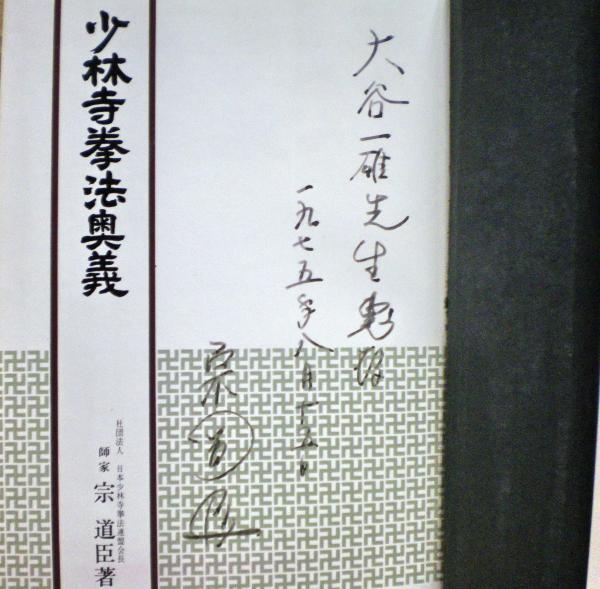 大谷一雄先生恵存
一九七五年八月十五日
宗道臣
少林寺拳法奥義
社団法人 日本少林寺拳法連盟会長
師家 宗道臣著